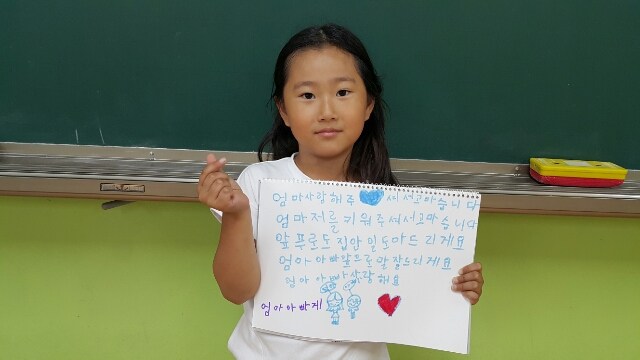 엄마사랑해주셔서고마습니다
엄마저를키워주셔서고마습니다
앞푸로도집안일도아드리게요
엄아아빠앞으로말잘드리게요
엄아아빠사랑해요
엄아아빠게